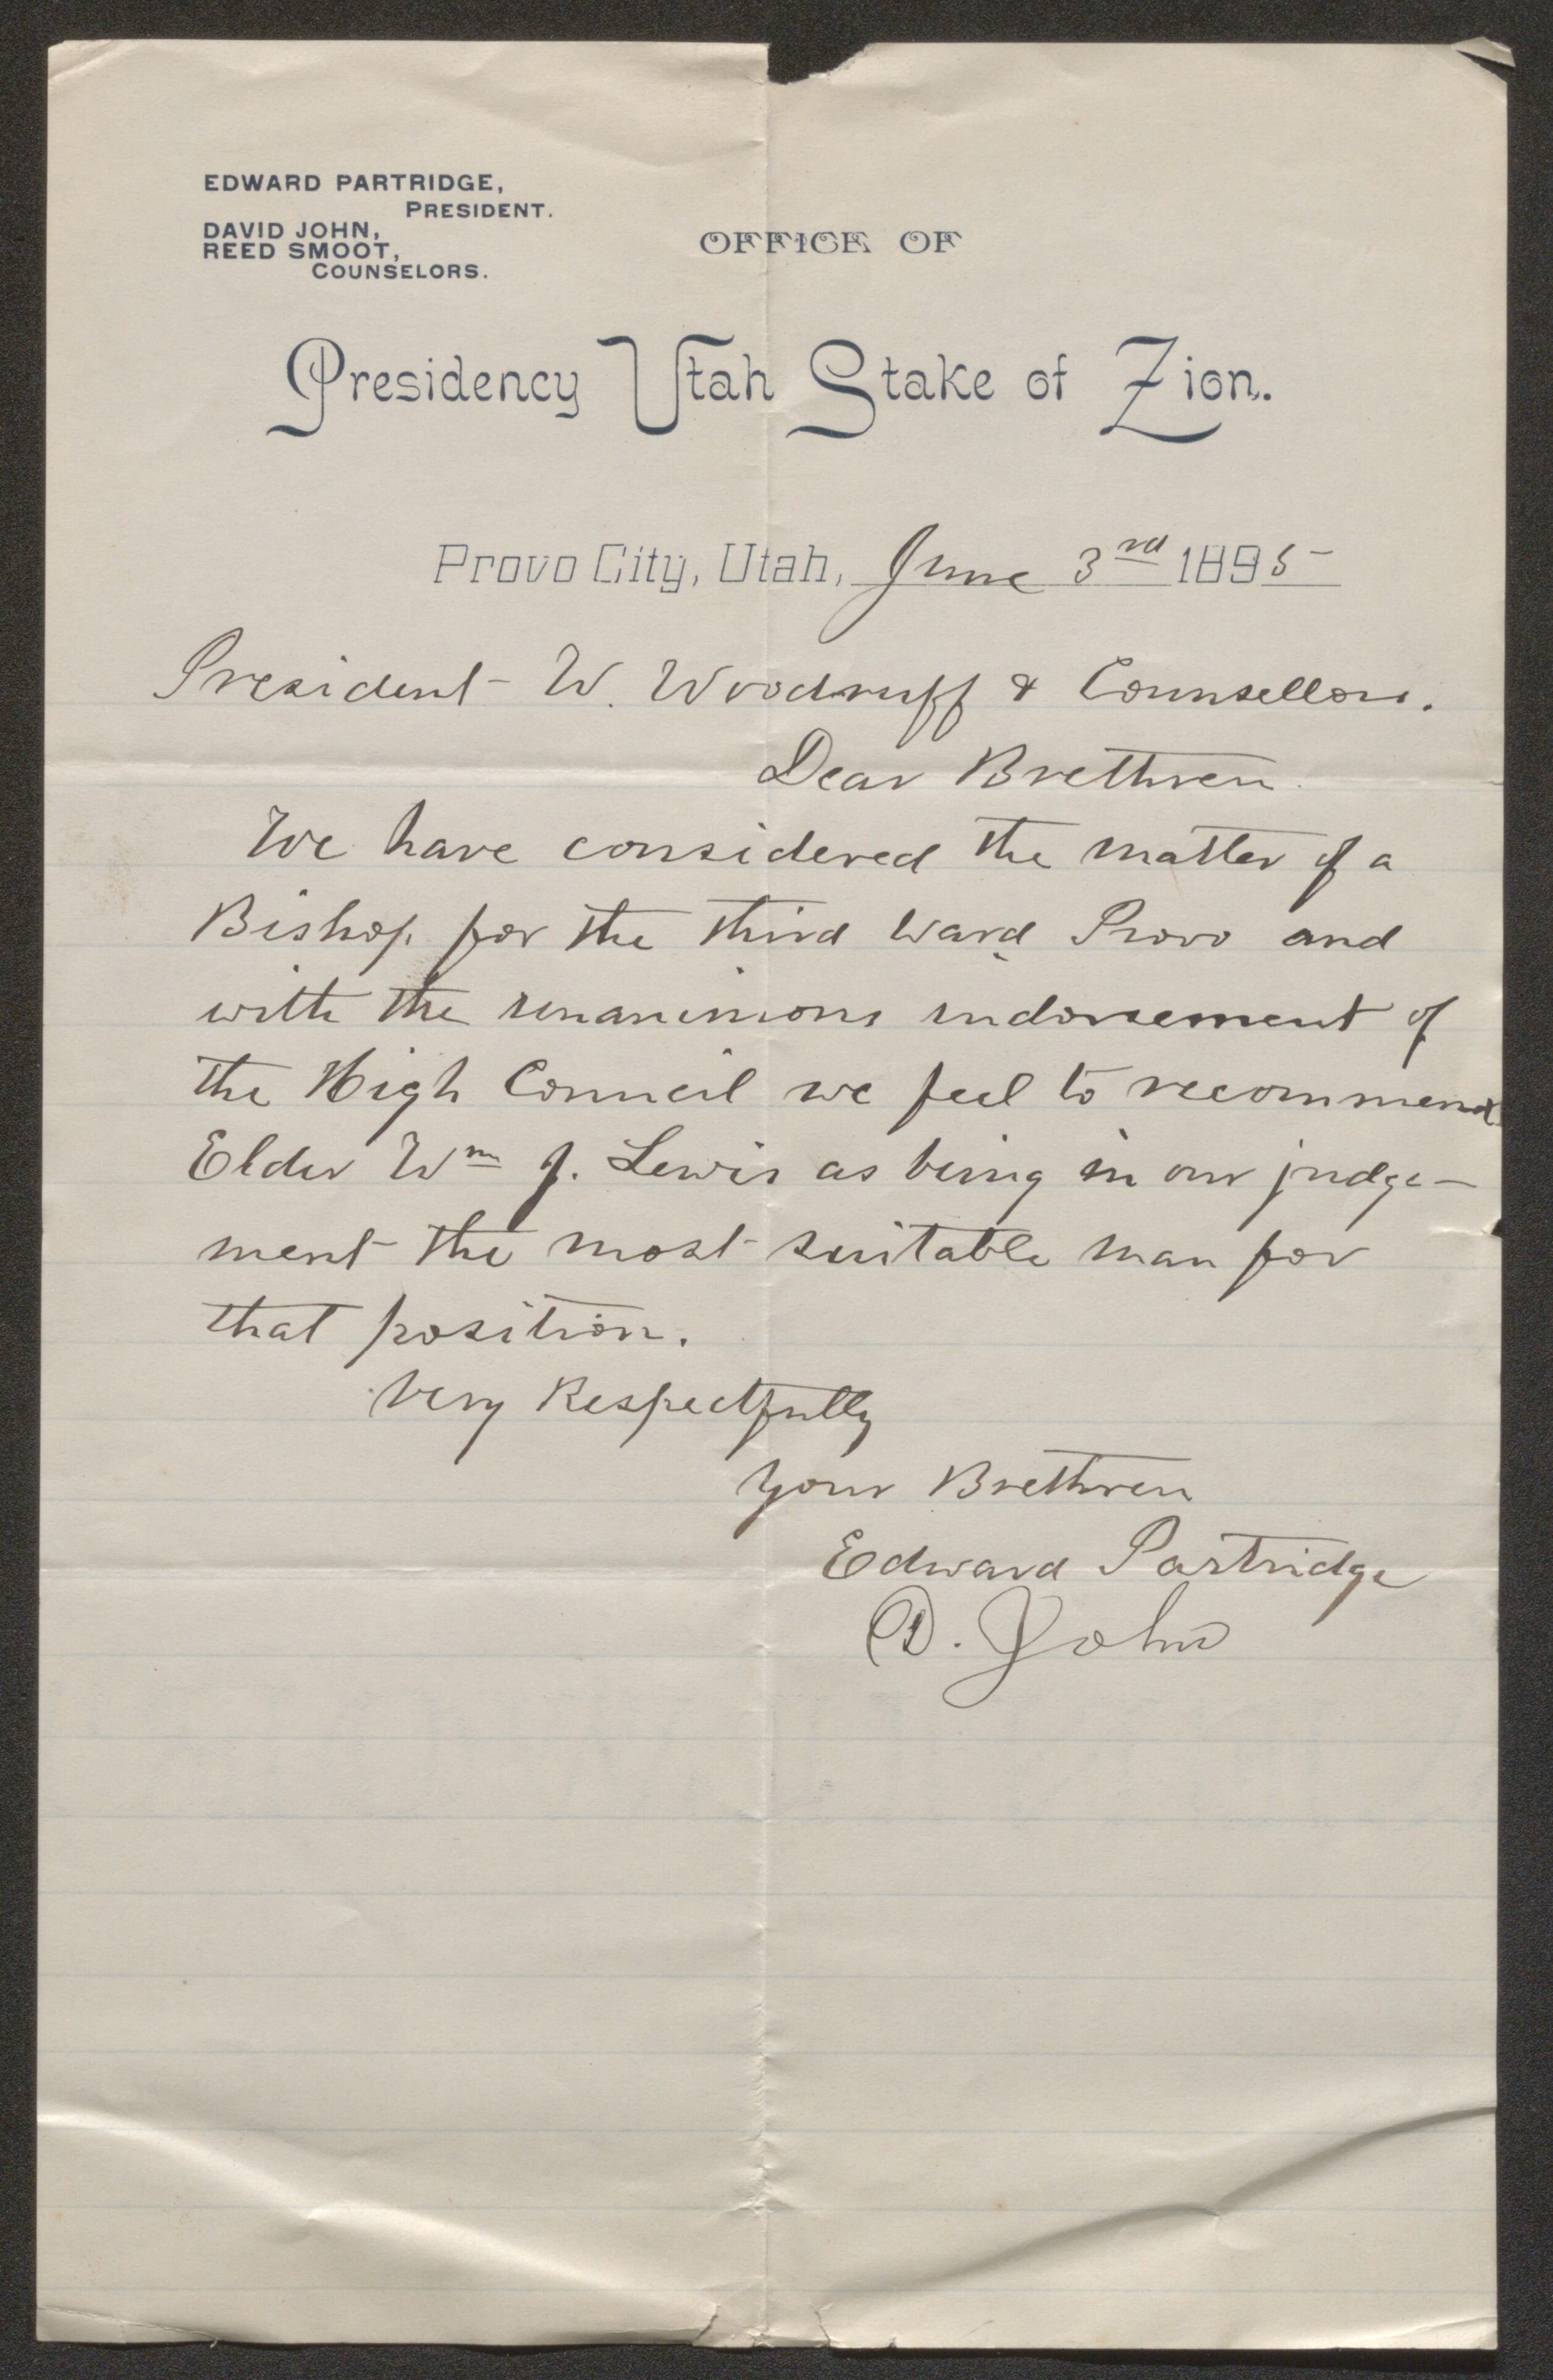 EDWARD PARTRIDGE,
PRESIDENT.
DAVID JOHN,
REED SMOOT,
COUNSELORS.
OFFICE OF
Presidency Utah Stake of Zion.
Provo City, Utah, June 3rd 1895
President W. Woodruff & Counsellors.
Dear Brethren
We have considered the matter of a
Bishop for the third Ward Provo and
with the unanimous indorsement of
the High Council we feel to recommend
Elder Wm J. Lewis as being in our judge-
ment the most suitable man for
that position.
Very Respectfully
Your Brethren
Edward Partridge
D. John